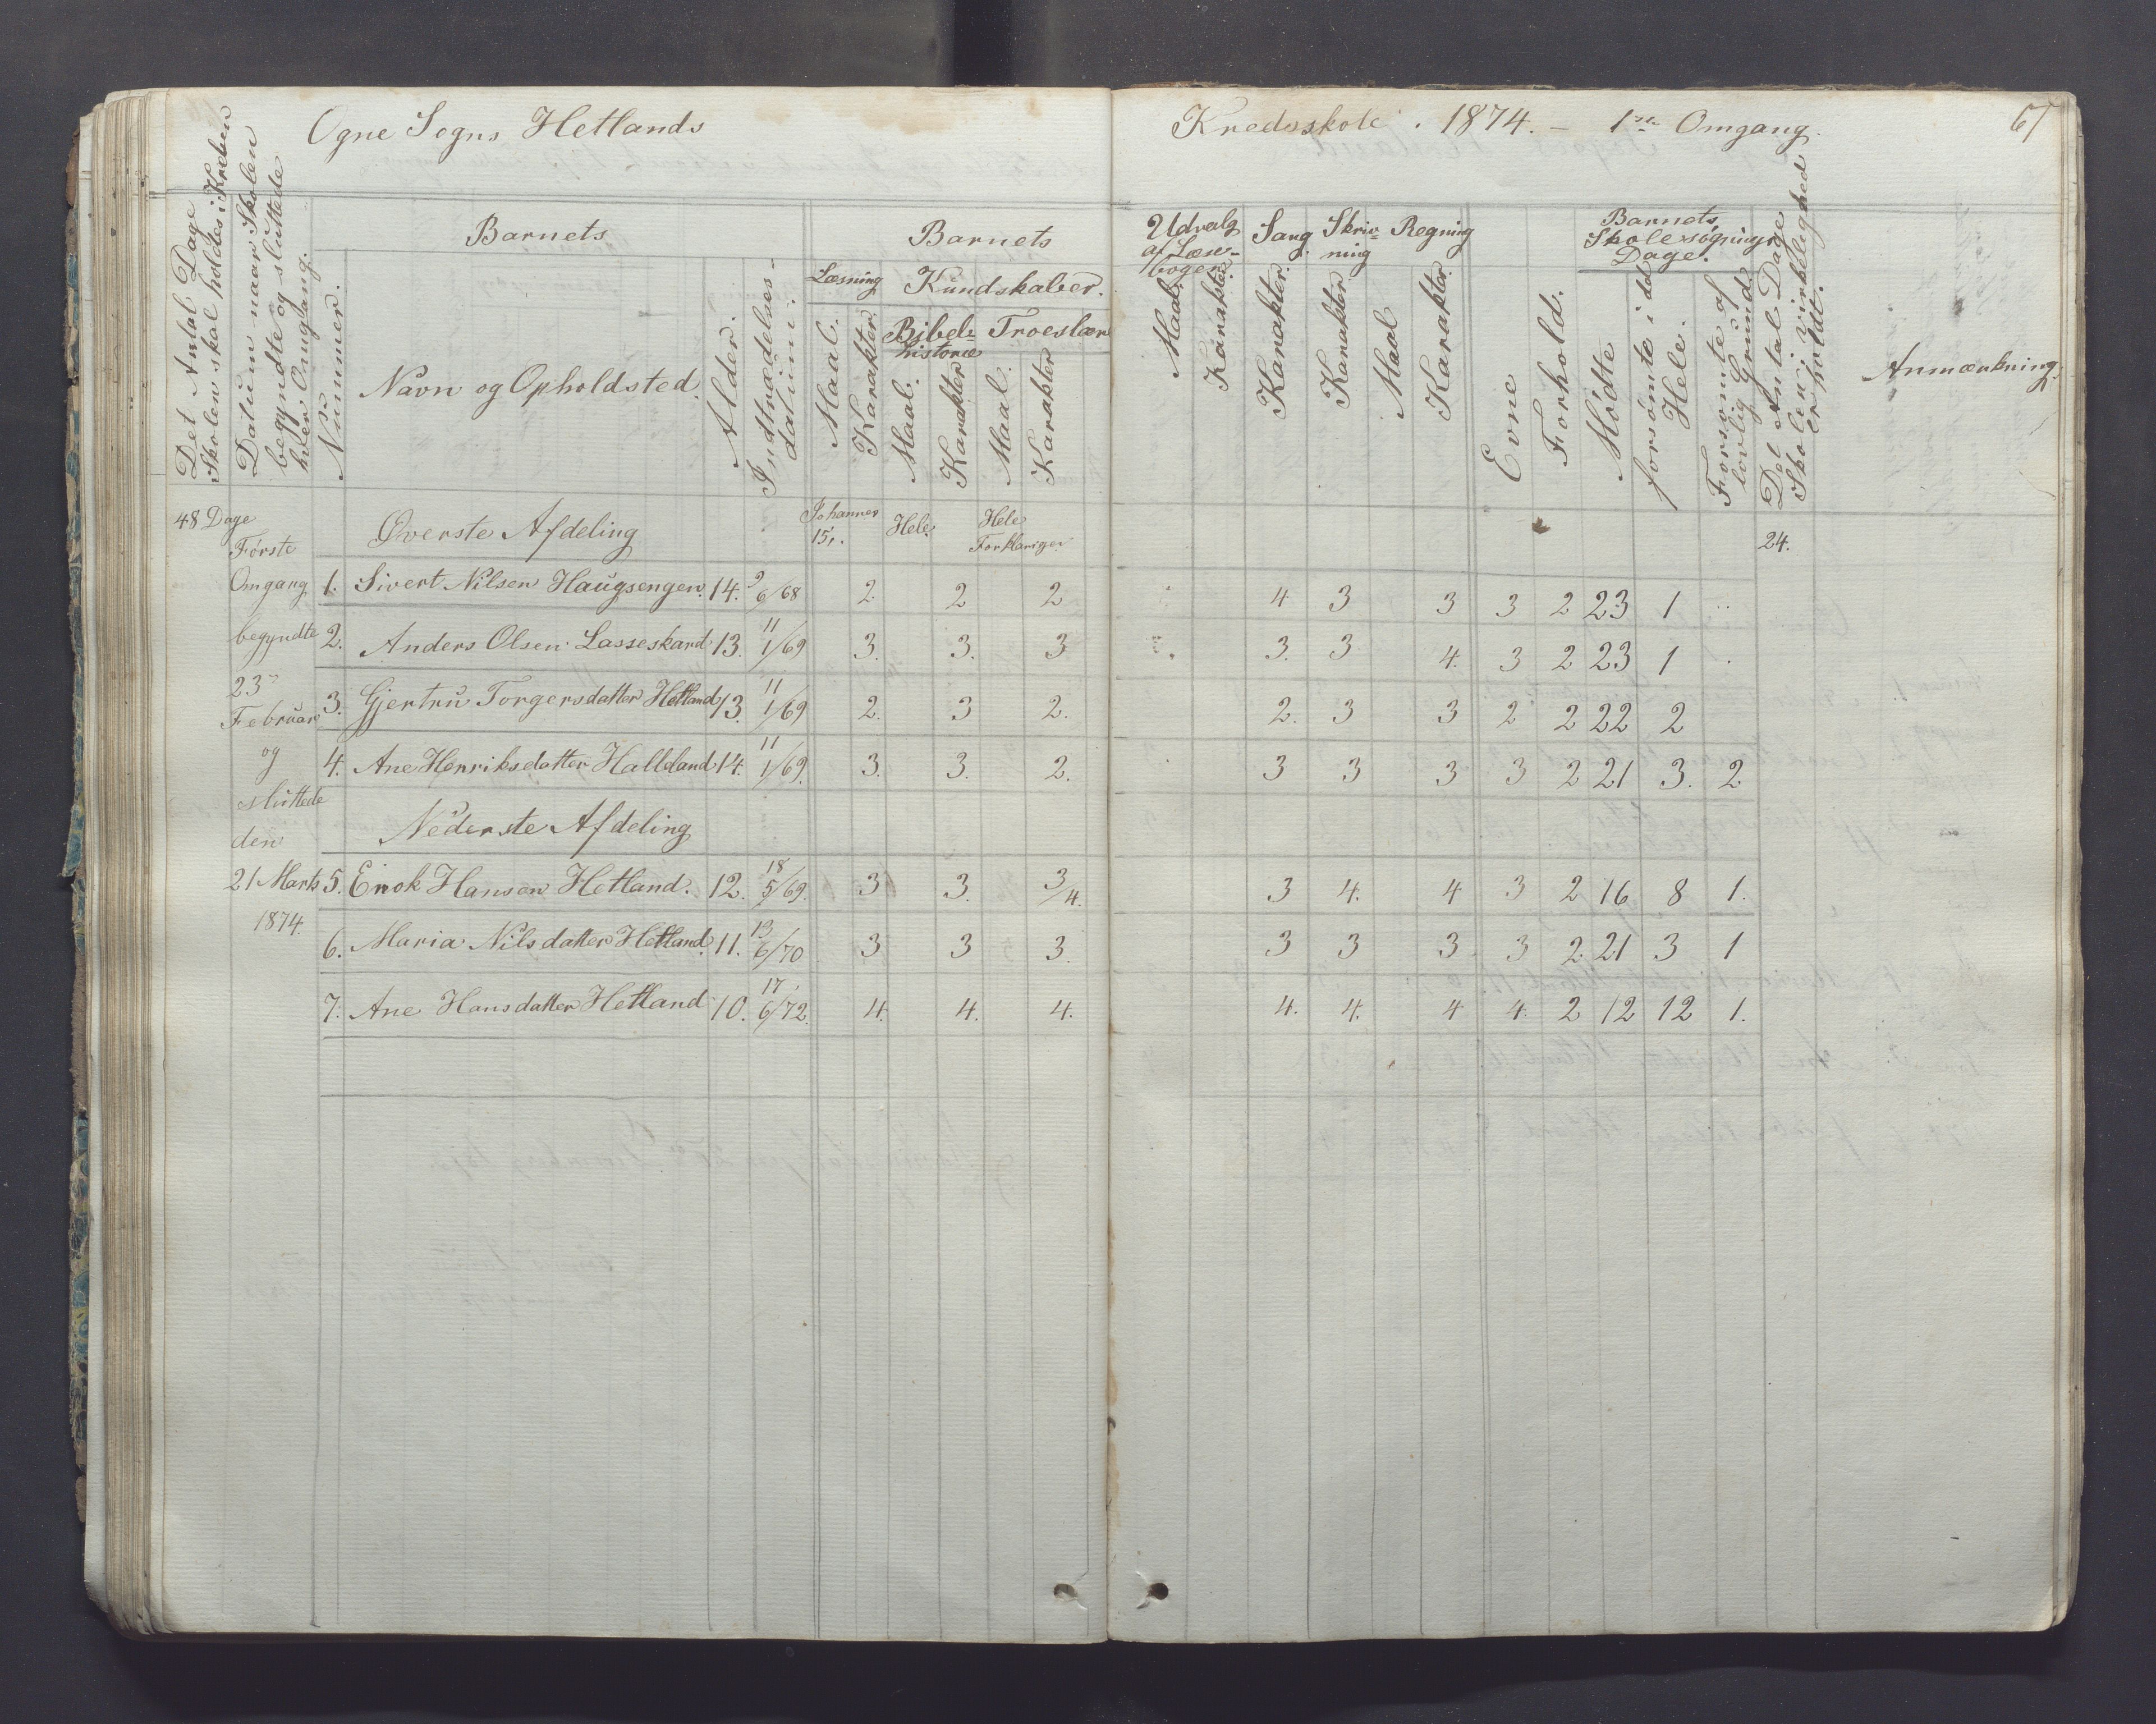 Ogne Sogns Hetlands
Kredsskole. 1874. – 1ste Omgang.
67
Det Antal Dage
Skolen skal holdes i Kredsen
Datum naar Skolen
begyndte og sluttede
hver Omgang.
Nummer.
Barnets
Navn og Opholdsted.
Alder.
Indtrædelses-
datum.
Barnets
Læsning
Kundskaber.
Maal.
Karakter.
Bibel-
historie
Maal.
Karakter
Troeslære
Maal.
Karakter
Udvalg
af Læse-
bogen.
Maal.
Karakter.
Sang
Karakter.
Skriv-
ning
Karakter
Regning
Maal
Karakter.
Evne
Forhold.
Barnets
Skolesøgnings
Dage.
Mødte
forsømte i det
Hele.
Forsømte af
lovlig Grund
Det Antal Dage
Skolen i virkelighed
er holdt.
Anmærkning.
48 Dage
Øverste Afdeling
Johannes
15,.
Hele
Hele
Forklaringen
24.
Første
Omgang
begyndte
23de
Februar
og
sluttede
den
21 Marts
1874.
1. Sivert Nilsen Haugsengen. 14. 9/6/68 2. 2 2 4 3 3 3 2 23 1 ..
2. Anders Olsen Lasseskard 13. 11/1/69 3. 3. 3 3. 3 4. 3 2 23 1 .
3. Gjertru Torgersdatter Hetland 13. 11/1/69 2. 3 2. 2. 3 3 2 2 22 2
4. Ane Henriksdatter Halleland 14. 11/1/69. 3. 3. 2. 3 3 3 3 2 21 3. 2
Nederste Afdeling
5. Enok Hansen Hetland. 12. 18/5/69. 3 3. 3/4. 3 4. 4 3 2 16 8 1.
6. Maria Nilsdatter Hetland. 11. 13/6/70 3 3 3. 3 3 3. 3 2. 21 3 1
7. Ane Hansdatter Hetland 10. 17/6/72. 4. 4. 4. 4. 4. 4 4. 2 12 12 1.